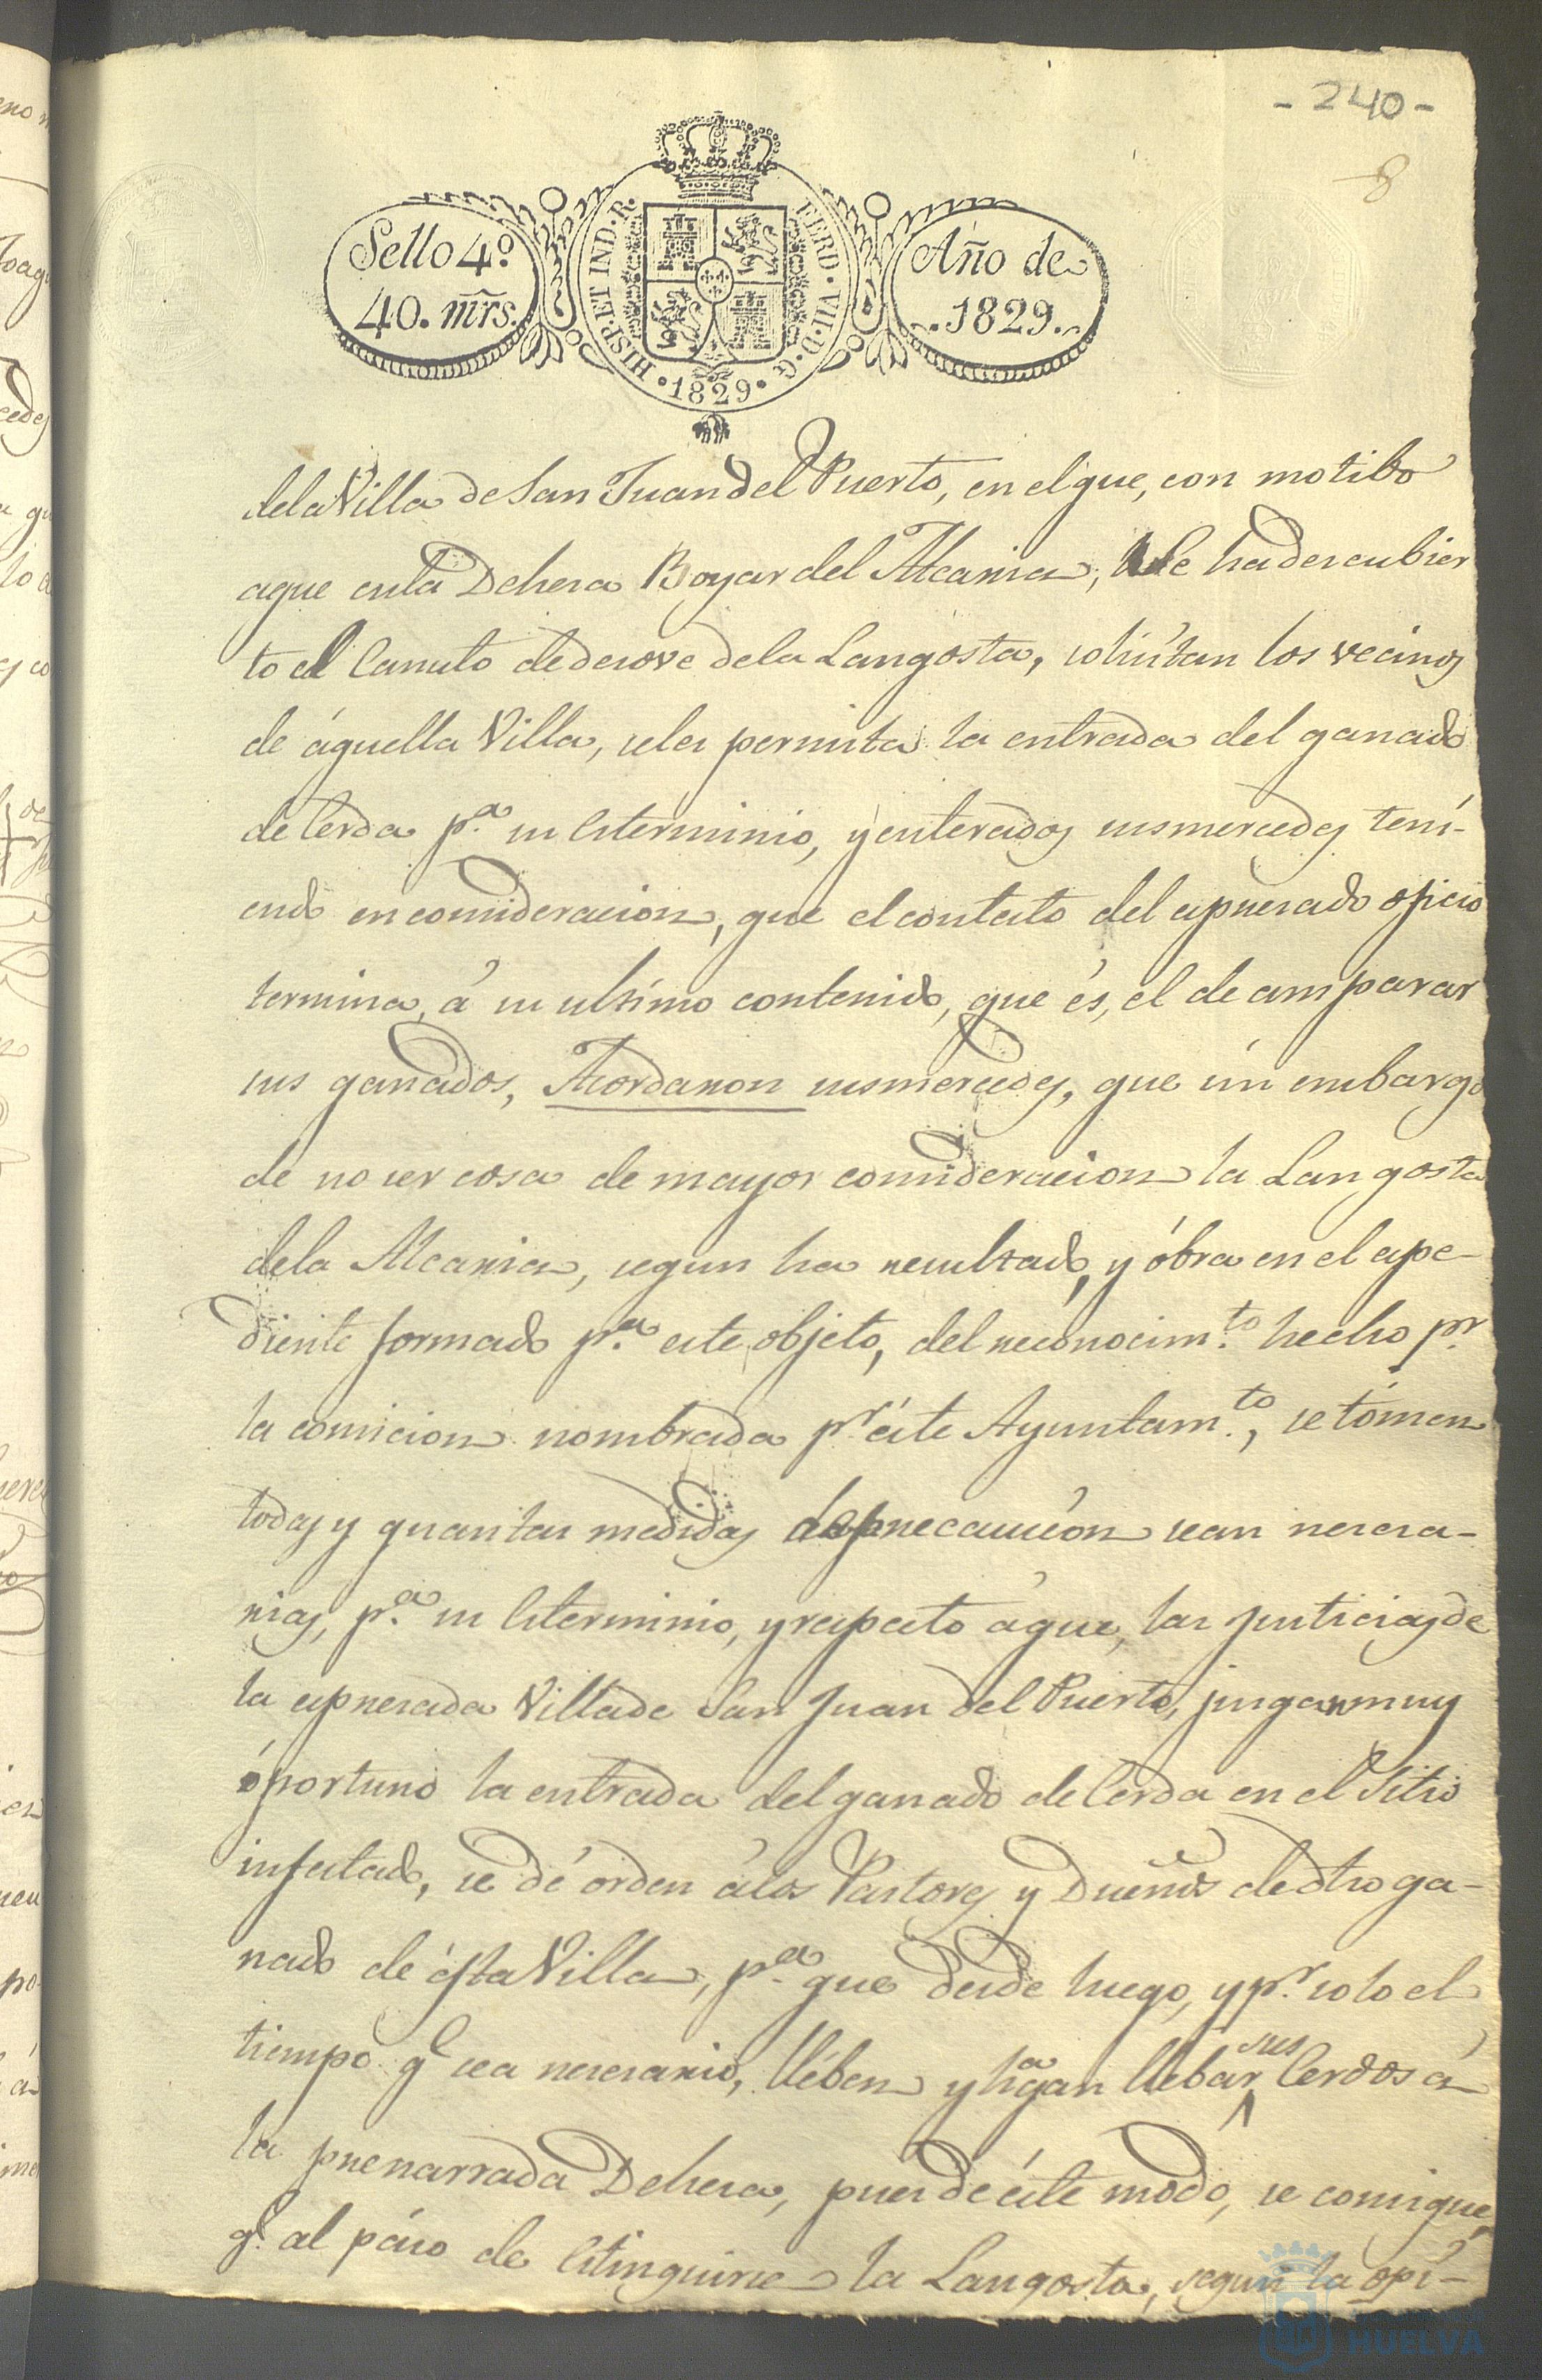 - 240 -
8
Sello 4º
40. mrs.
HISP. ET IND. R.
FERD. VII. D. G.
· 1829 ·
Año de
1829.
dela Villa de San Juan del Puerto, en el que, con motibo
aque enla Dehesa Boyar del Alcania, se ha descubier
to el Canuto dedesove dela Langosta, solisitan los vecinos
de áquella Villa, seles permita la entrada del ganado
de Cerda p.ª su Esterminio, y enterados susmercedes tení-
endo en consideracion, que el contesto del espresado oficio
termina, á su ultimo contenido, que és, el de amparar
sus ganados, Acordaron susmercedes, que sin embargo
de no ser cosa de mayor consideracion la Langosta
dela Alcania, segun ha resultado, y óbra en el espe-
diente formado p.ª este objeto, del reconocim.to hecho p.r
la comicion nombrada p.r éste Ayuntam.to, se tómen
todas y quantas medidas de precaucion sean nesesa-
rias, p.ª su Esterminio, y respecto áque, las Justicias de
la espresada Villa de San Juan del Puerto, jusgan muy
óportuno la entrada del ganado de Cerda en el Sitio
infestado, se dé orden álos Pastores y Dueños de dho ga-
nado de ésta Villa, p.ª que desde luego, y p.r solo el
tiempo q.e sea nesesario, llében y hagan llebar sus Cerdos á
la prenarrada Dehesa, pues de éste modo, se consigue,
q.e al páso de Estinguirse la Langosta, segun la opi-
HUELVA